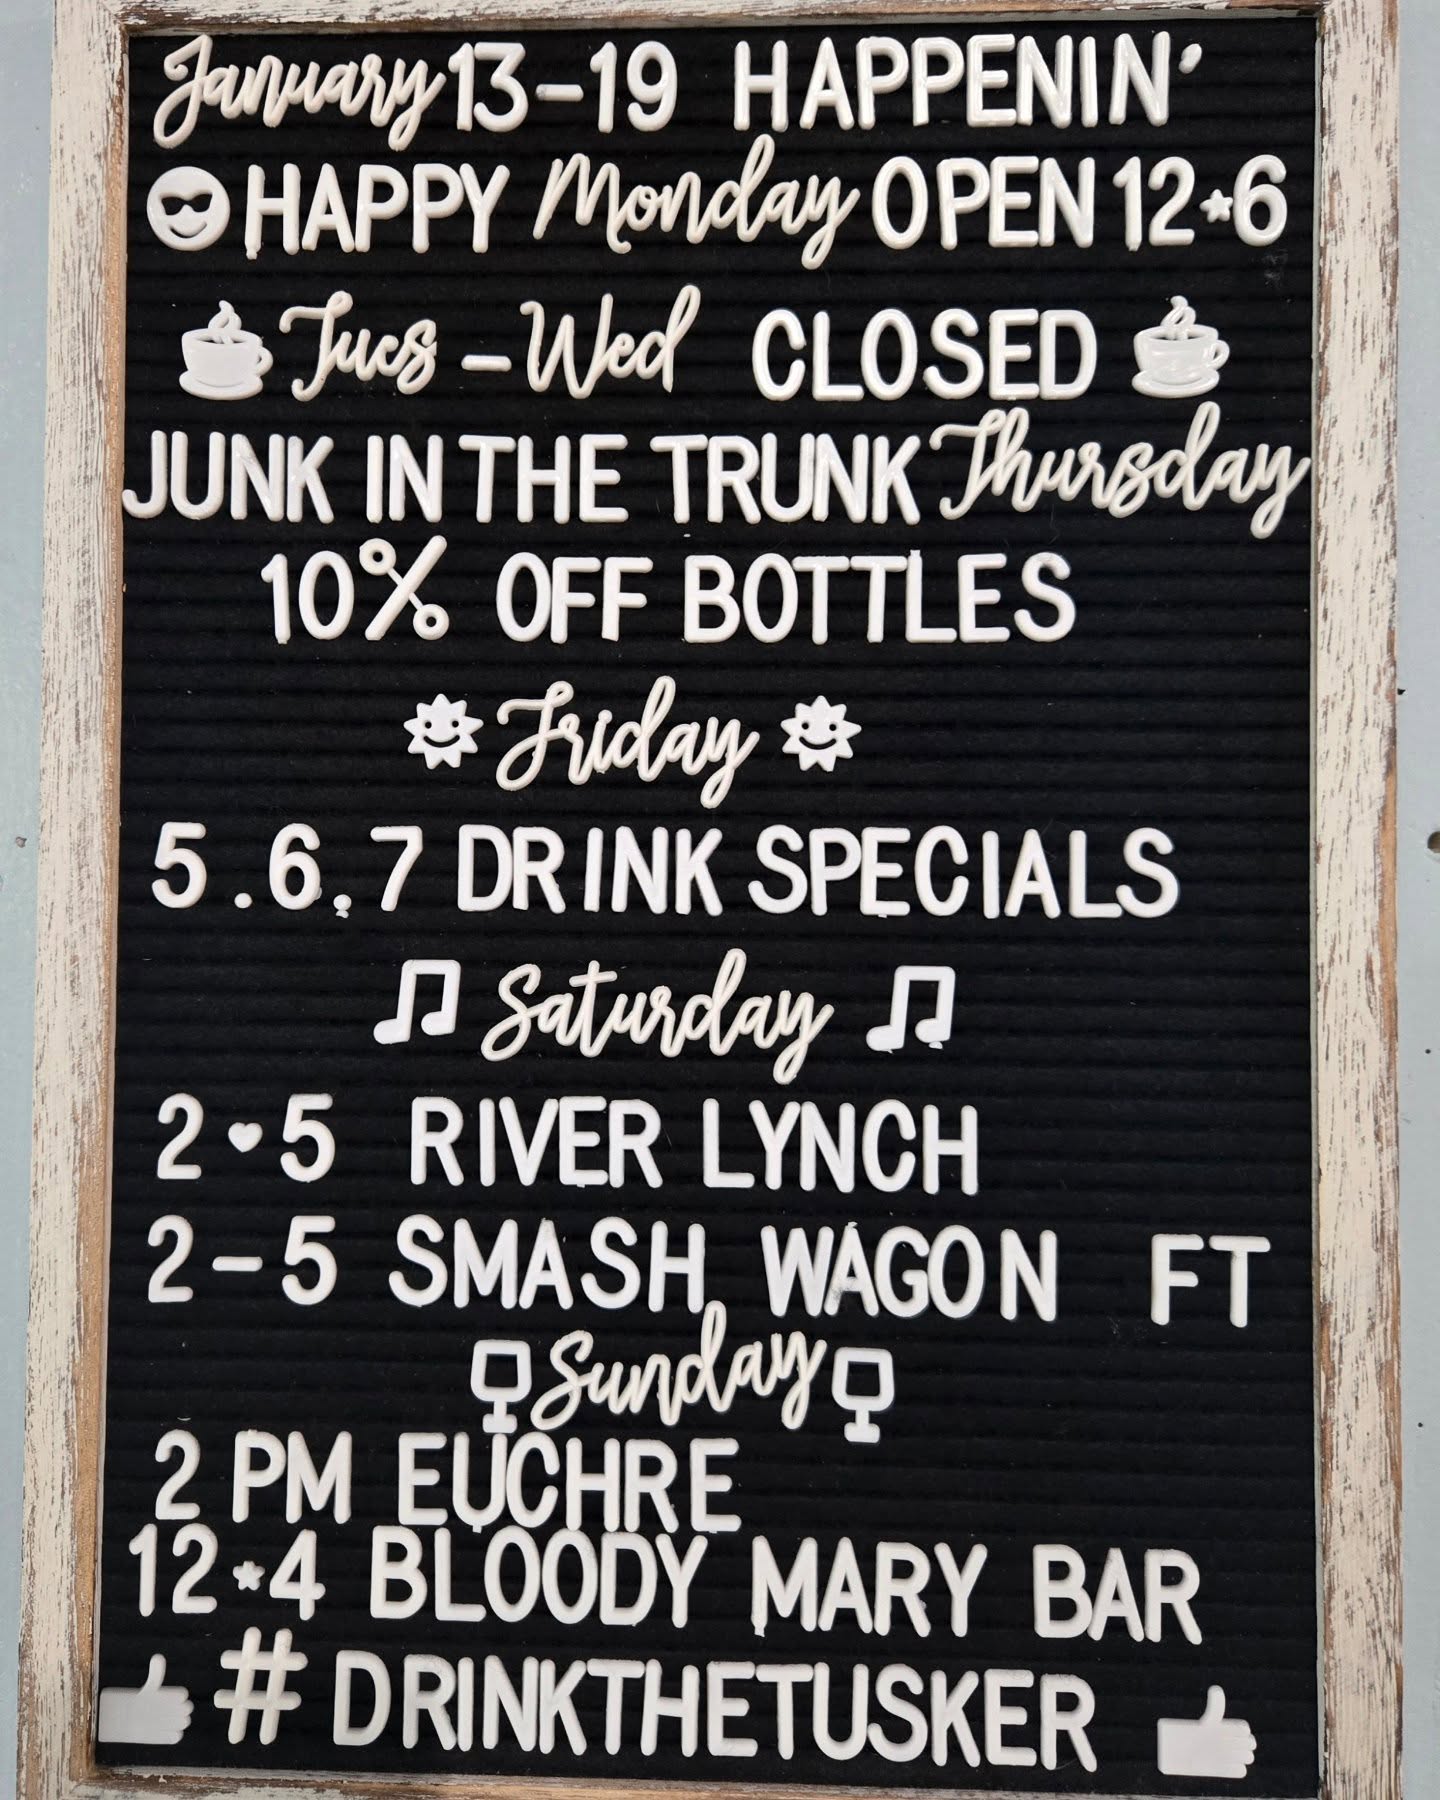 January 13-19 HAPPENIN'
HAPPY Monday OPEN 12*6
Tues - Wed CLOSED
JUNK IN THE TRUNK Thursday
10% OFF BOTTLES
Friday
5.6,7 DRINK SPECIALS
Saturday
2♥5 RIVER LYNCH
2-5 SMASH WAGON FT
Sunday
2 PM EUCHRE
12*4 BLOODY MARY BAR
#DRINKTHETUSKER